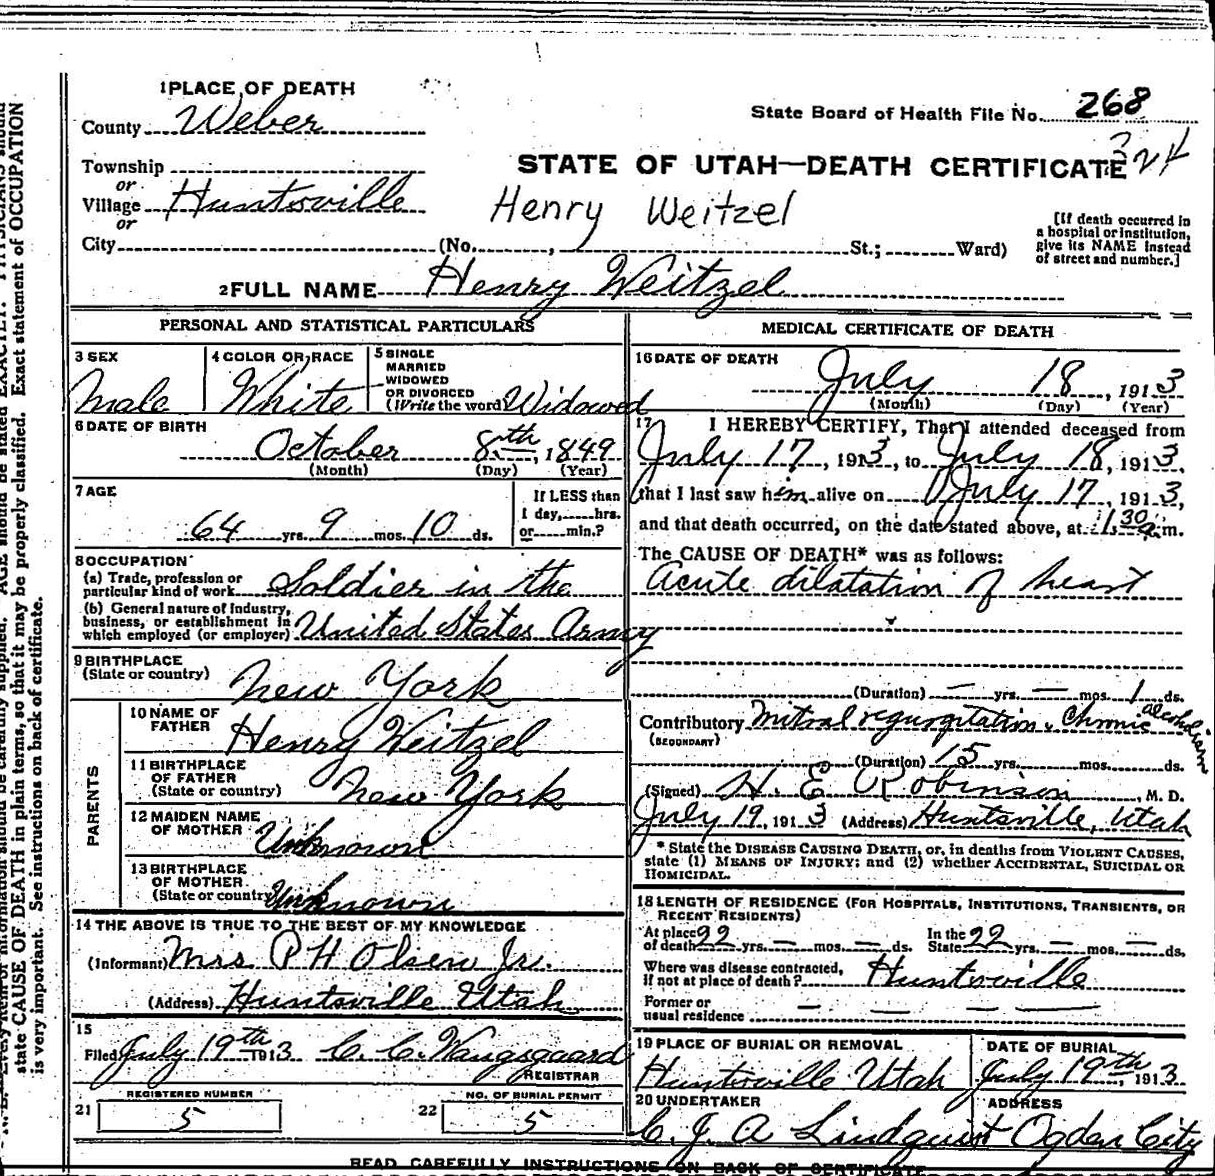 1 PLACE OF DEATH
County Weber
State Board of Health File No. 268
324
Township
or
Village Huntsville
or
City (No. , St.; Ward)
STATE OF UTAH—DEATH CERTIFICATE
Henry Weitzel
[If death occurred in
a hospital or institution,
give its NAME instead
of street and number.]
2 FULL NAME Henry Weitzel
PERSONAL AND STATISTICAL PARTICULARS
3 SEX
Male
4 COLOR OR RACE
White
5 SINGLE
MARRIED
WIDOWED
OR DIVORCED
(Write the word) Widowed
6 DATE OF BIRTH
October 8th, 1849
(Month) (Day) (Year)
7 AGE
64 yrs. 9 mos. 10 ds.
If LESS than
1 day, hrs.
or min.?
8 OCCUPATION
(a) Trade, profession or
particular kind of work Soldier in the
(b) General nature of industry,
business, or establishment in
which employed (or employer) United States Army
9 BIRTHPLACE
(State or country) New York
PARENTS
10 NAME OF
FATHER Henry Weitzel
11 BIRTHPLACE
OF FATHER
(State or country) New York
12 MAIDEN NAME
OF MOTHER Unknown
13 BIRTHPLACE
OF MOTHER
(State or country) Unknown
14 THE ABOVE IS TRUE TO THE BEST OF MY KNOWLEDGE
(Informant) Mrs P H Olsen Jr.
(Address) Huntsville Utah
15
Filed July 19th 1913 C. C. Wangsgaard
REGISTRAR
21 REGISTERED NUMBER
5
22 NO. OF BURIAL PERMIT
5
MEDICAL CERTIFICATE OF DEATH
16 DATE OF DEATH
July 18, 1913
(Month) (Day) (Year)
17 I HEREBY CERTIFY, That I attended deceased from
July 17, 1913, to July 18, 1913,
that I last saw him alive on July 17, 1913,
and that death occurred, on the date stated above, at 1.30 a.m.
The CAUSE OF DEATH* was as follows:
Acute dilatation of heart
(Duration) — yrs. — mos. 1 ds.
Contributory Mitral regurgitation. Chronic alcoholism
(SECONDARY)
(Duration) 15 yrs. mos. ds.
(Signed) H. E Robinson, M. D.
July 19, 1913 (Address) Huntsville, Utah
* State the DISEASE CAUSING DEATH, or, in deaths from VIOLENT CAUSES,
state (1) MEANS OF INJURY; and (2) whether ACCIDENTAL, SUICIDAL OR
HOMICIDAL.
18 LENGTH OF RESIDENCE (FOR HOSPITALS, INSTITUTIONS, TRANSIENTS, OR
RECENT RESIDENTS)
At place
of death 22 yrs. — mos. — ds. In the
State 22 yrs. — mos. — ds.
Where was disease contracted,
if not at place of death? Huntsville
Former or
usual residence — — —
19 PLACE OF BURIAL OR REMOVAL
Huntsville Utah
DATE OF BURIAL
July 19th, 1913
20 UNDERTAKER
C. J. A Lindquist
ADDRESS
Ogden City
READ CAREFULLY INSTRUCTIONS ON BACK OF CERTIFICATE
AGE should be stated EXACTLY. PHYSICIANS should
state CAUSE OF DEATH in plain terms, so that it may be properly classified. Exact statement of OCCUPATION
is very important. See instructions on back of certificate.